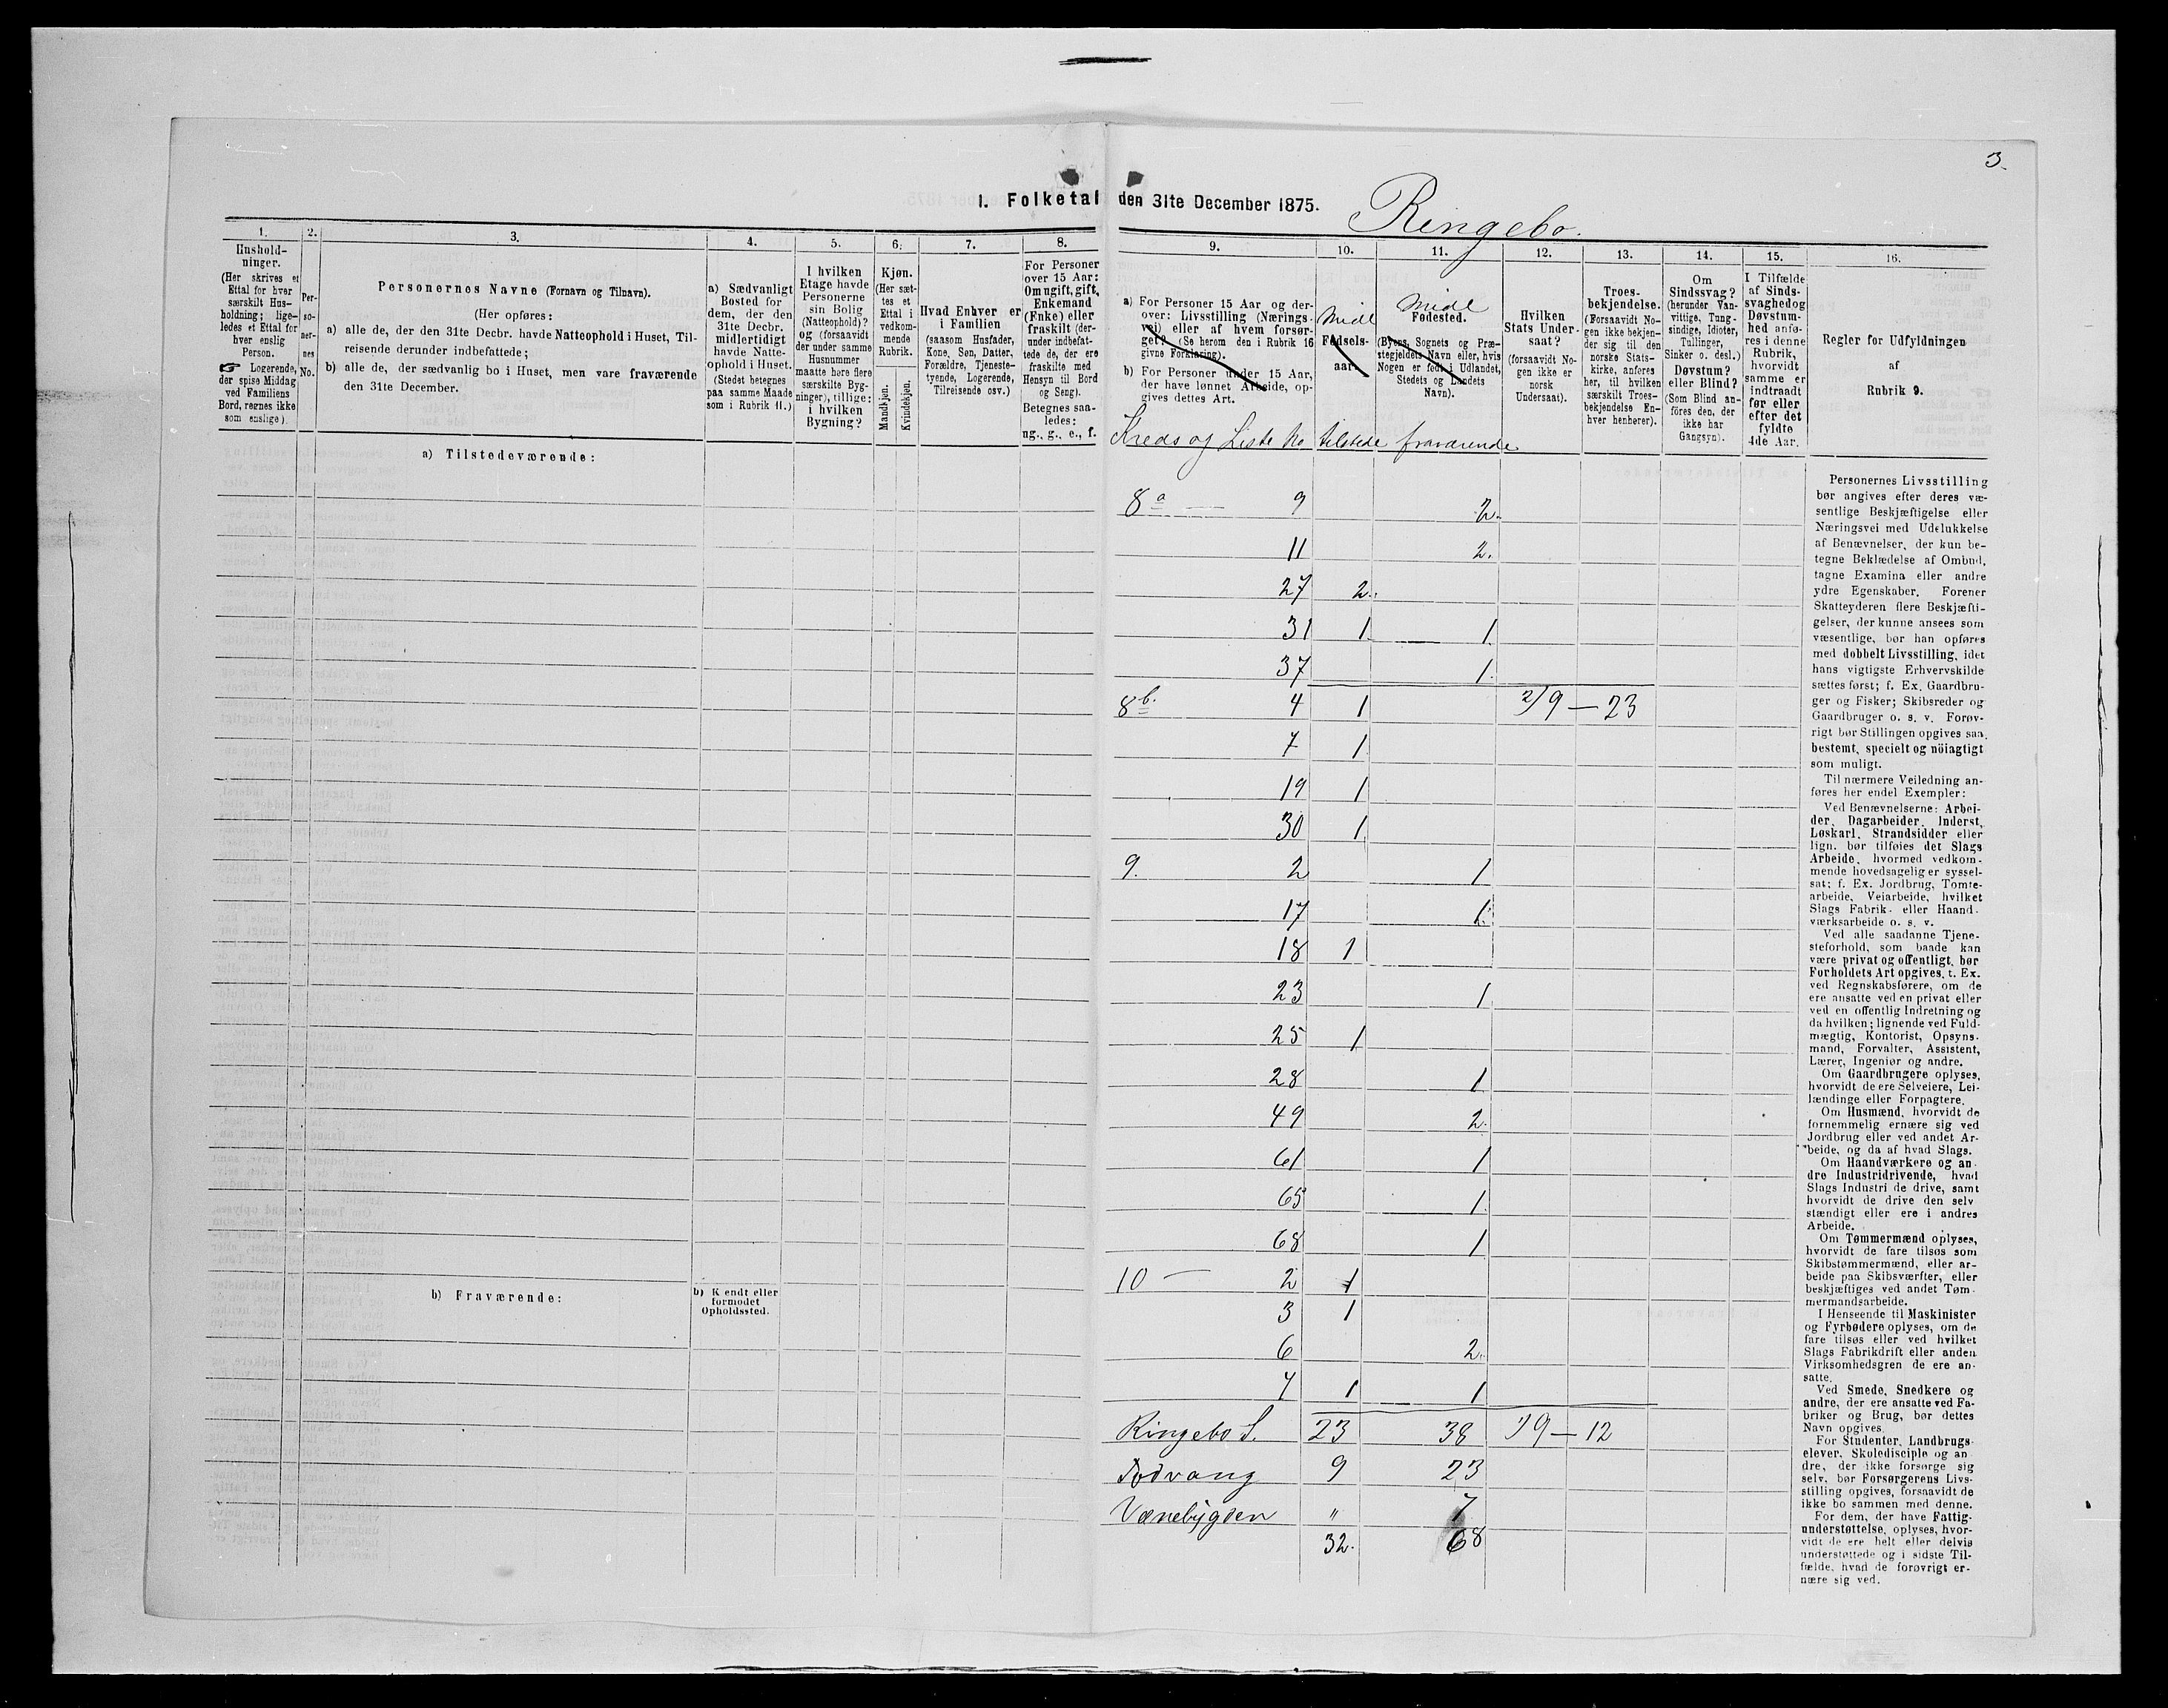 3.
1. Folketal den 31te December 1875.
Ringebo.
1.
Hushold-
ninger.
(Her skrives et
Ettal for hver
særskilt Hus-
holdning; lige-
ledes et Ettal for
hver enslig
Person.
☞ Logerende,
der spise Middag
ved Familiens
Bord, regnes ikke
som enslige).
2.
Per-
so-
ner-
nes
No.
3.
Personernes Navne (Fornavn og Tilnavn).
(Her opføres:
a) alle de, der den 31te Decbr. havde Natteophold i Huset, Til-
reisende derunder indbefattede;
b) alle de, der sædvanlig bo i Huset, men vare fraværende
den 31te December.
4.
a) Sædvanligt
Bosted for
dem, der den
31te Decbr.
midlertidigt
havde Natte-
ophold i Huset.
(Stedet betegnes
paa samme Maade
som i Rubrik 11.)
5.
I hvilken
Etage havde
Personerne
sin Bolig
(Natteophold)?
og (forsaavidt
der under samme
Husnummer
maatte høre flere
særskilte Byg-
ninger), tillige:
i hvilken
Bygning?
6.
Kjøn.
(Her sæt-
tes et
Ettal i
vedkom-
mende
Rubrik.
Mandkjøn.
Kvindekjøn.
7.
Hvad Enhver er
i Familien
(saasom Husfader,
Kone, Søn, Datter,
Forældre, Tjeneste-
tyende, Logerende,
Tilreisende osv.)
8.
For Personer
over 15 Aar:
Om ugift, gift,
Enkemand
(Enke) eller
fraskilt (der-
under indbefat-
tede de, der ere
fraskilte med
Hensyn til Bord
og Seng).
Betegnes saa-
ledes:
ug., g., e., f.
9.
a) For Personer 15 Aar og der-
over: Livsstilling (Nærings-
vei) eller af hvem forsør-
get? (Se herom den i Rubrik 16
givne Forklaring).
b) For Personer under 15 Aar,
der have lønnet Arbeide, op-
gives dettes Art.
10.
Midl
Fødsels-
aar.
11.
Midl
Fødested.
(Byens, Sognets og Præ-
stegjeldets Navn eller, hvis
Nogen er født i Udlandet,
Stedets og Landets
Navn).
12.
Hvilken
Stats Under-
saat?
(forsaavidt No-
gen ikke er
norsk
Undersaat).
13.
Troes-
bekjendelse.
(Forsaavidt No-
gen ikke bekjen-
der sig til den
norske Stats-
kirke, anføres
her, til hvilken
særskilt Troes-
bekjendelse En-
hver henhører).
14.
Om
Sindssvag?
(herunder Van-
vittige, Tung-
sindige, Idioter,
Tullinger,
Sinker o. desl.)
Døvstum?
eller Blind?
(Som Blind an-
føres den, der
ikke har
Gangsyn).
15.
I Tilfælde
af Sinds-
svaghed og
Døvstum-
hed anfø-
res i denne
Rubrik,
hvorvidt
samme er
indtraadt
før eller
efter det
fyldte
4de Aar.
16.
Regler for Udfyldningen
af
Rubrik 9.
Kreds og Liste No tilstede fraværende
a) Tilstedeværende:
8a — 9 2.
11 2.
27 2.
31 1 1.
37 1.
8b. 4 1 2/9 — 23
7 1
19 1
30 1
9. 2 1
17 1.
18 1
23 1
25 1
28 1
49 2.
61 1
65 1
68 1
10 — 2 1
3 1
6 2.
7 1 1
Ringebo S. 23 38 1/9 — 12
Fodvang 9 23
Venebygden " 7
32. 68
b) Fraværende:
b) Kendt eller
formodet
Opholdssted.
Personernes Livsstilling
bør angives efter deres væ-
sentlige Beskjæftigelse eller
Næringsvei med Udelukkelse
af Benævnelser, der kun be-
tegne Beklædelse af Ombud,
tagne Examina eller andre
ydre Egenskaber. Forener
Skatteyderen flere Beskjæfti-
gelser, der kunne ansees som
væsentlige, bør han opføres
med dobbelt Livsstilling, idet
hans vigtigste Erhvervskilde
sættes først; f. Ex. Gaardbru-
ger og Fisker; Skibsreder og
Gaardbruger o. s. v. Forøv-
rigt bør Stillingen opgives saa
bestemt, specielt og nöiagtigt
som muligt.
Til nærmere Veiledning an-
føres her endel Exempler:
Ved Benævnelserne: Arbei-
der, Dagarbeider, Inderst,
Løskarl, Strandsidder eller
lign. bør tilføies det Slags
Arbeide, hvormed vedkom-
mende hovedsagelig er syssel-
sat; f. Ex. Jordbrug, Tomte-
arbeide, Veiarbeide, hvilket
Slags Fabrik- eller Haand-
værksarbeide o. s. v.
Ved alle saadanne Tjene-
steforhold, som baade kan
være privat og offentligt, bør
Forholdets Art opgives, t. Ex.
ved Regnskabsførere, om de
ere ansatte ved en privat eller
ved en offentlig Indretning og
da hvilken; lignende ved Fuld-
mægtig, Kontorist, Opsyns-
mand, Forvalter, Assistent,
Lærer, Ingeniør og andre.
Om Gaardbrugere oplyses,
hvorvidt de ere Selveiere, Lei-
lændinge eller Forpagtere.
Om Husmænd, hvorvidt de
fornemmelig ernære sig ved
Jordbrug eller ved andet Ar-
beide, og da af hvad Slags.
Om Haandværkere og an-
dre Industridrivende, hvad
Slags Industri de drive, samt
hvorvidt de drive den selv
stændigt eller ere i andres
Arbeide.
Om Tømmermænd oplyses,
hvorvidt de fare tilsøs som
Skibstømmermænd, eller ar-
beide paa Skibsværfter, eller
beskjæftiges ved andet Tøm-
mermandsarbeide.
I Henseende til Maskinister
og Fyrbødere oplyses, om de
fare tilsøs eller ved hvilket
Slags Fabrikdrift eller anden
Virksomhedsgren de ere an-
satte.
Ved Smede, Snedkere og
andre, der ere ansatte ved Fa-
briker og Brug, bør dettes
Navn opgives.
For Studenter, Landbrugs-
elever, Skoledisciple og an-
dre, der ikke forsørge sig
selv, bør Forsørgerens Livs-
stilling opgives, forsaavidt de
ikke bo sammen med denne.
For dem, der have Fattig-
understøttelse, oplyses, hvor-
vidt de ere helt eller delvis
understøttede og i sidste Til-
fælde, hvad de forøvrigt er-
nære sig ved.